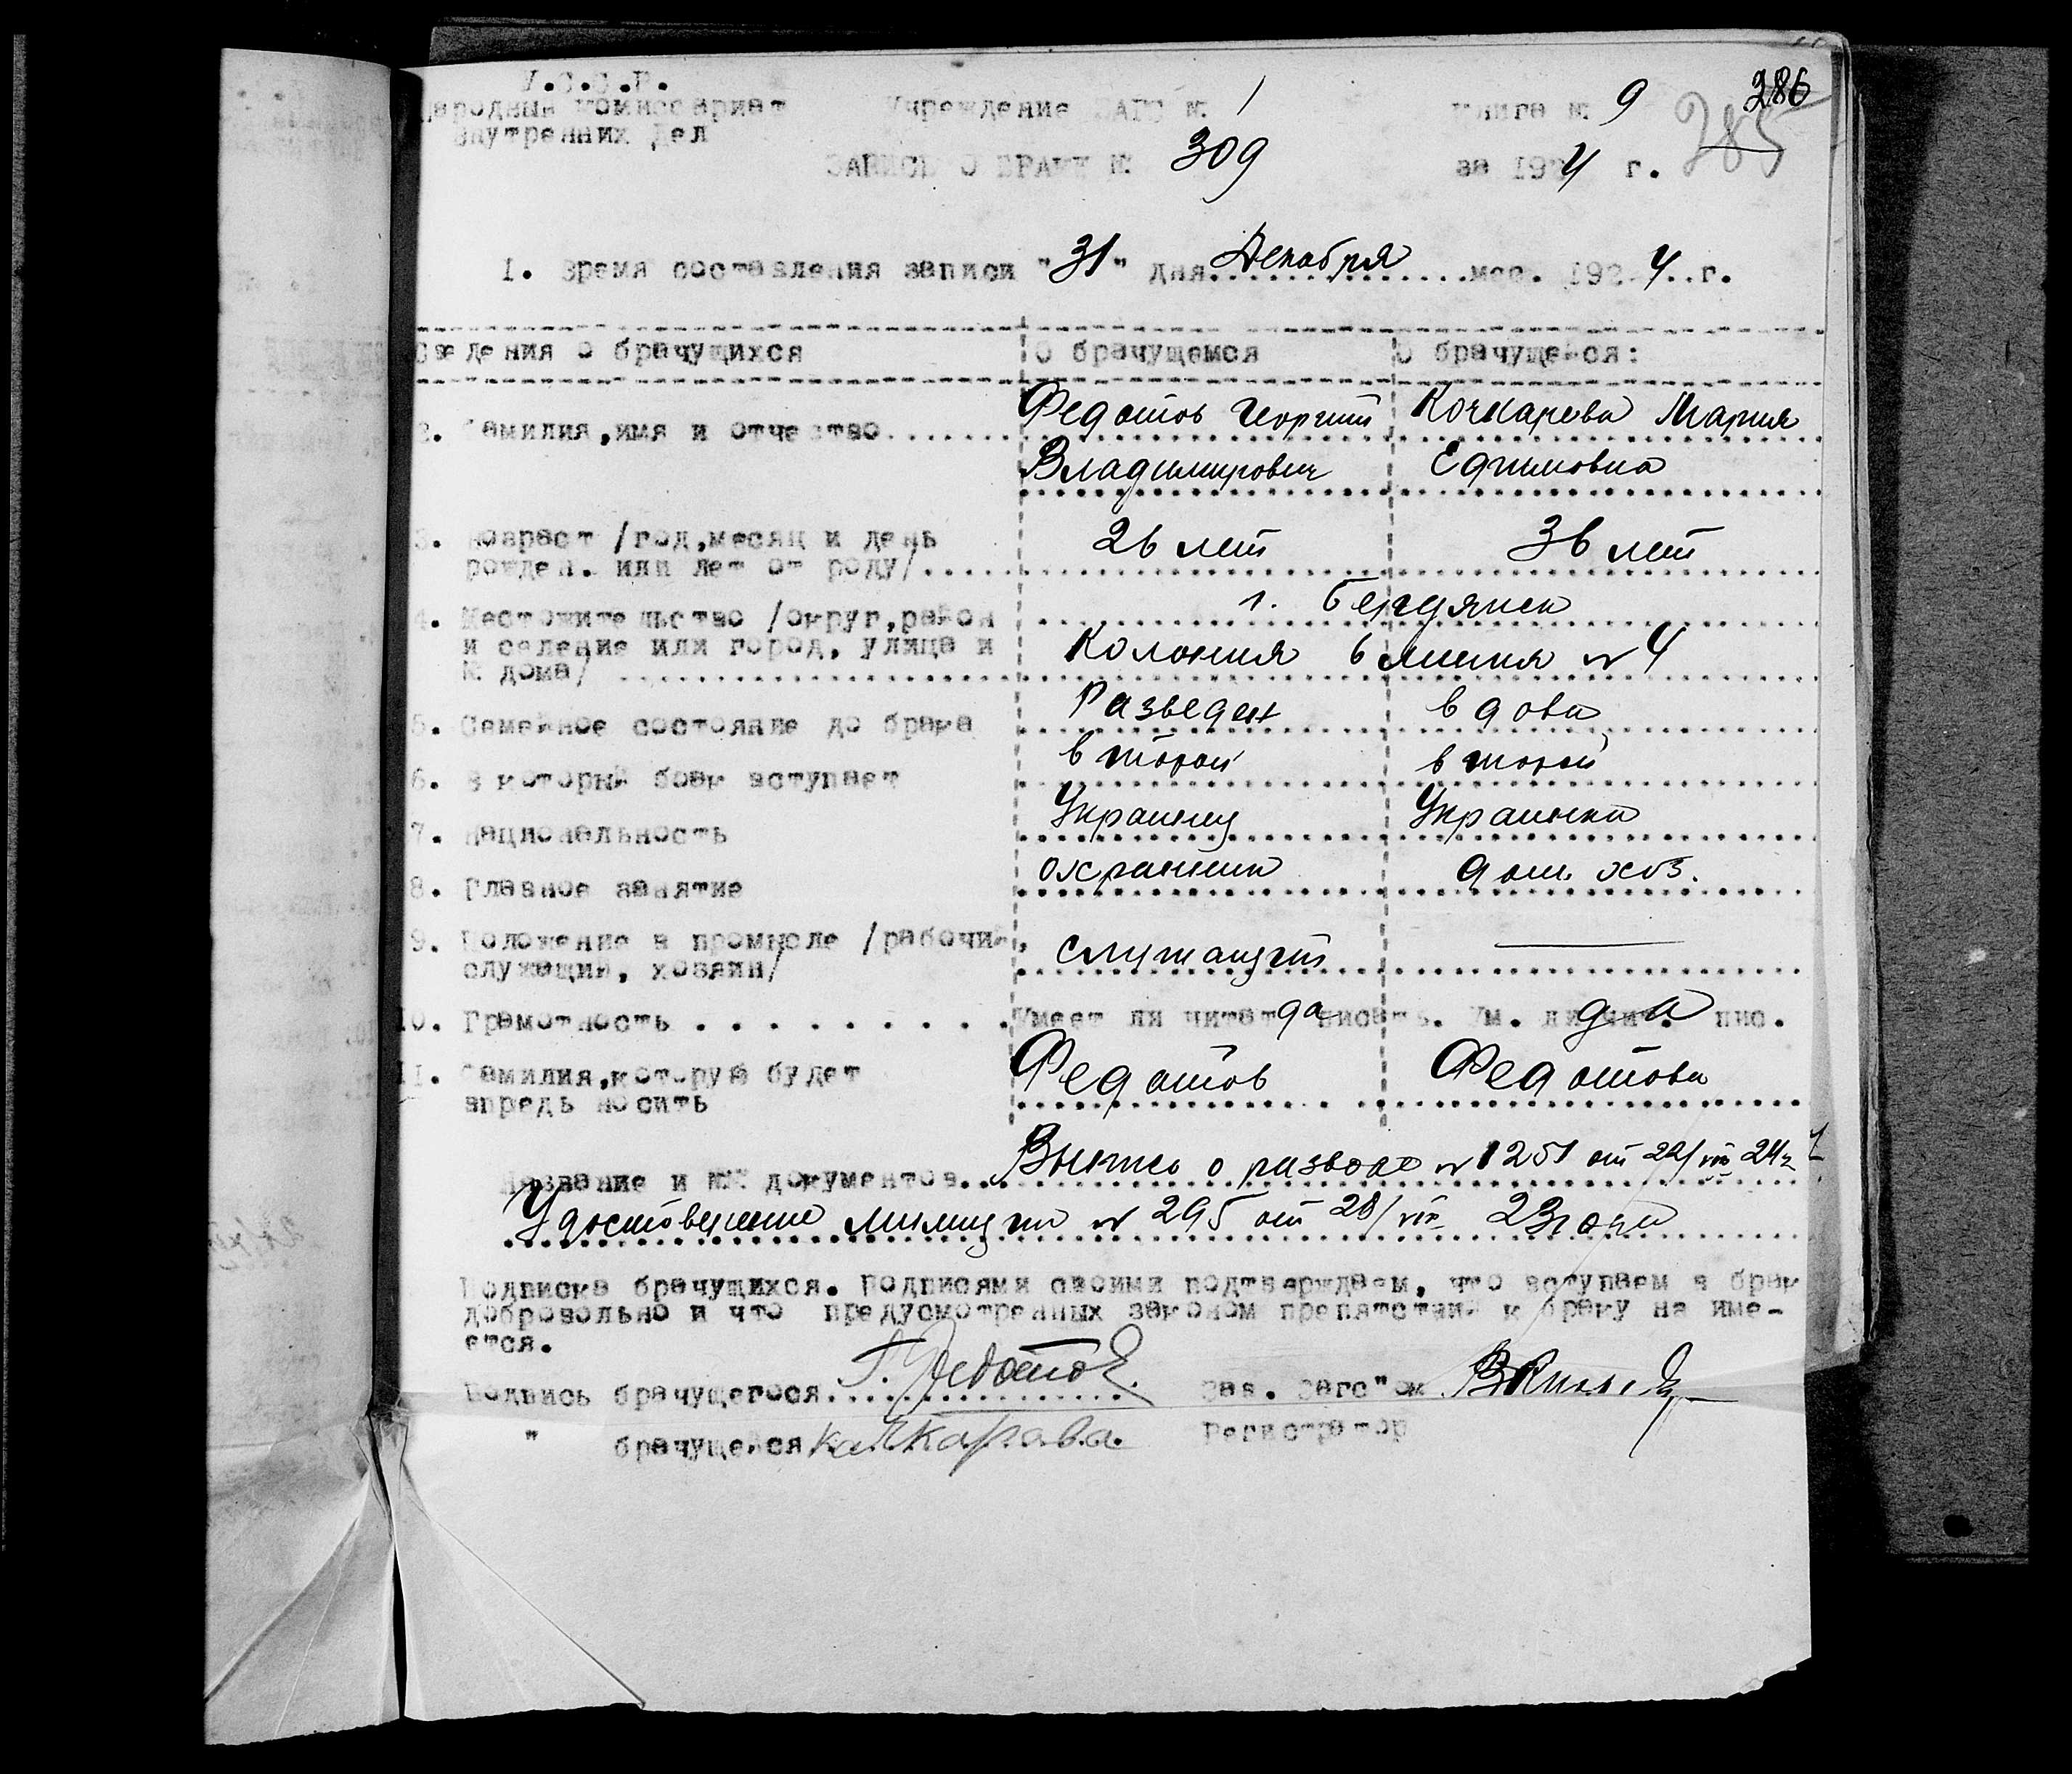 У.С.С.Р.
Народный Комиссариат
Внутренних Дел
Учреждение ЗАГС №. 1
Книга №. 9
286
285
ЗАПИСЬ О БРАКЕ №. 309
за 1924 г.
1. Время составления записи "31" дня Декабря мес. 1924 г.
Сведения о брачущихся
О брачущемся
О брачущейся:
2. Фамилия,имя и отчество.......
Федотов Георгий
Кочкарева Мария
Владимирович
Ефимовна
3. Возраст /год,месяц и день
26 лет
36 лет
рожден. или лет от роду/....
4. Местожительство /округ,район
г. Бердянск
и селение или город, улица и
Колония 6 линия № 4
№ дома/
5. Семейное состояние до брака
Разведен
вдова
6. В который брак вступает
второй
второй
7. Национальность
Украинец
Украинка
8. Главное занятие
охранник
дом. хоз.
9. Положение в промысле /рабочий,
служащий, хозяин/
служащий
10. Грамотность . . . . . . . . .
Умеет ли читат да писать. Ум. ли чит. да пис.
11. Фамилия,которую будет
впредь носить
Федотов
Федотова
Название и №№ документов...
Выпись о разводе № 1251 от 22/VII 24 г
Удостоверение милиции № 295 от 28/VII 23 года
Подписка брачущихся. Подписями своими подтверждаем, что вступаем в брак
добровольно и что предусмотренных законом препятствий к браку не име-
ется.
Подпись брачущегося Г. Федотов.
Зав. Загс"ом
" брачущейся Качкарава.
Регистратор